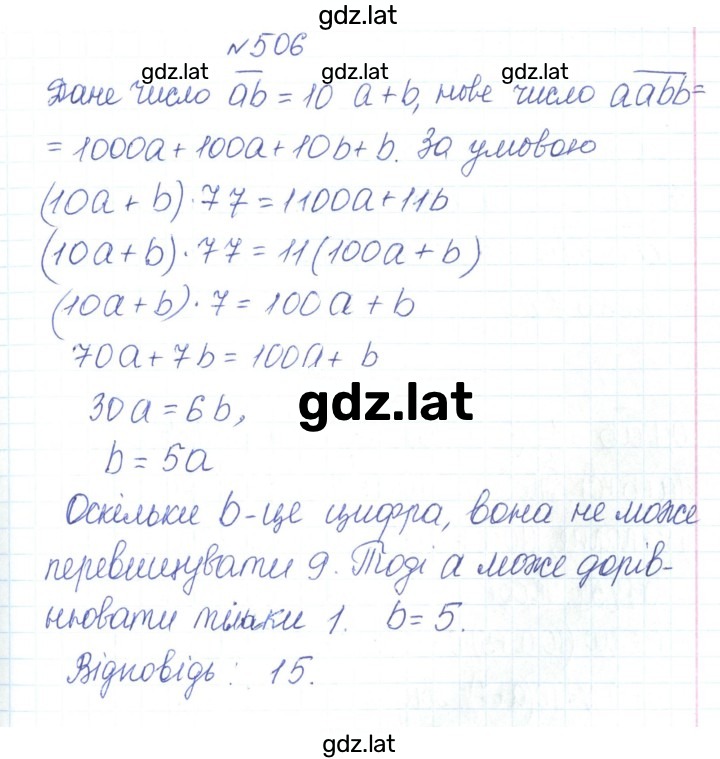 gdz.lat
№506
gdz.lat gdz.lat gdz.lat
Дане число ab̅ = 10 a + b, нове число aabb̅ =
= 1000a + 100a + 10b + b. За умовою
(10a + b) · 77 = 1100a + 11b
(10a + b) · 77 = 11(100a + b)
(10a + b) · 7 = 100a + b
70a + 7b = 100a + b
30a = 6b,
gdz.lat
b = 5a
Оскільки b - це цифра, вона не може
перевищувати 9. Тоді a може дорів-
нювати тільки 1. b = 5.
Відповідь: 15.
gdz.lat